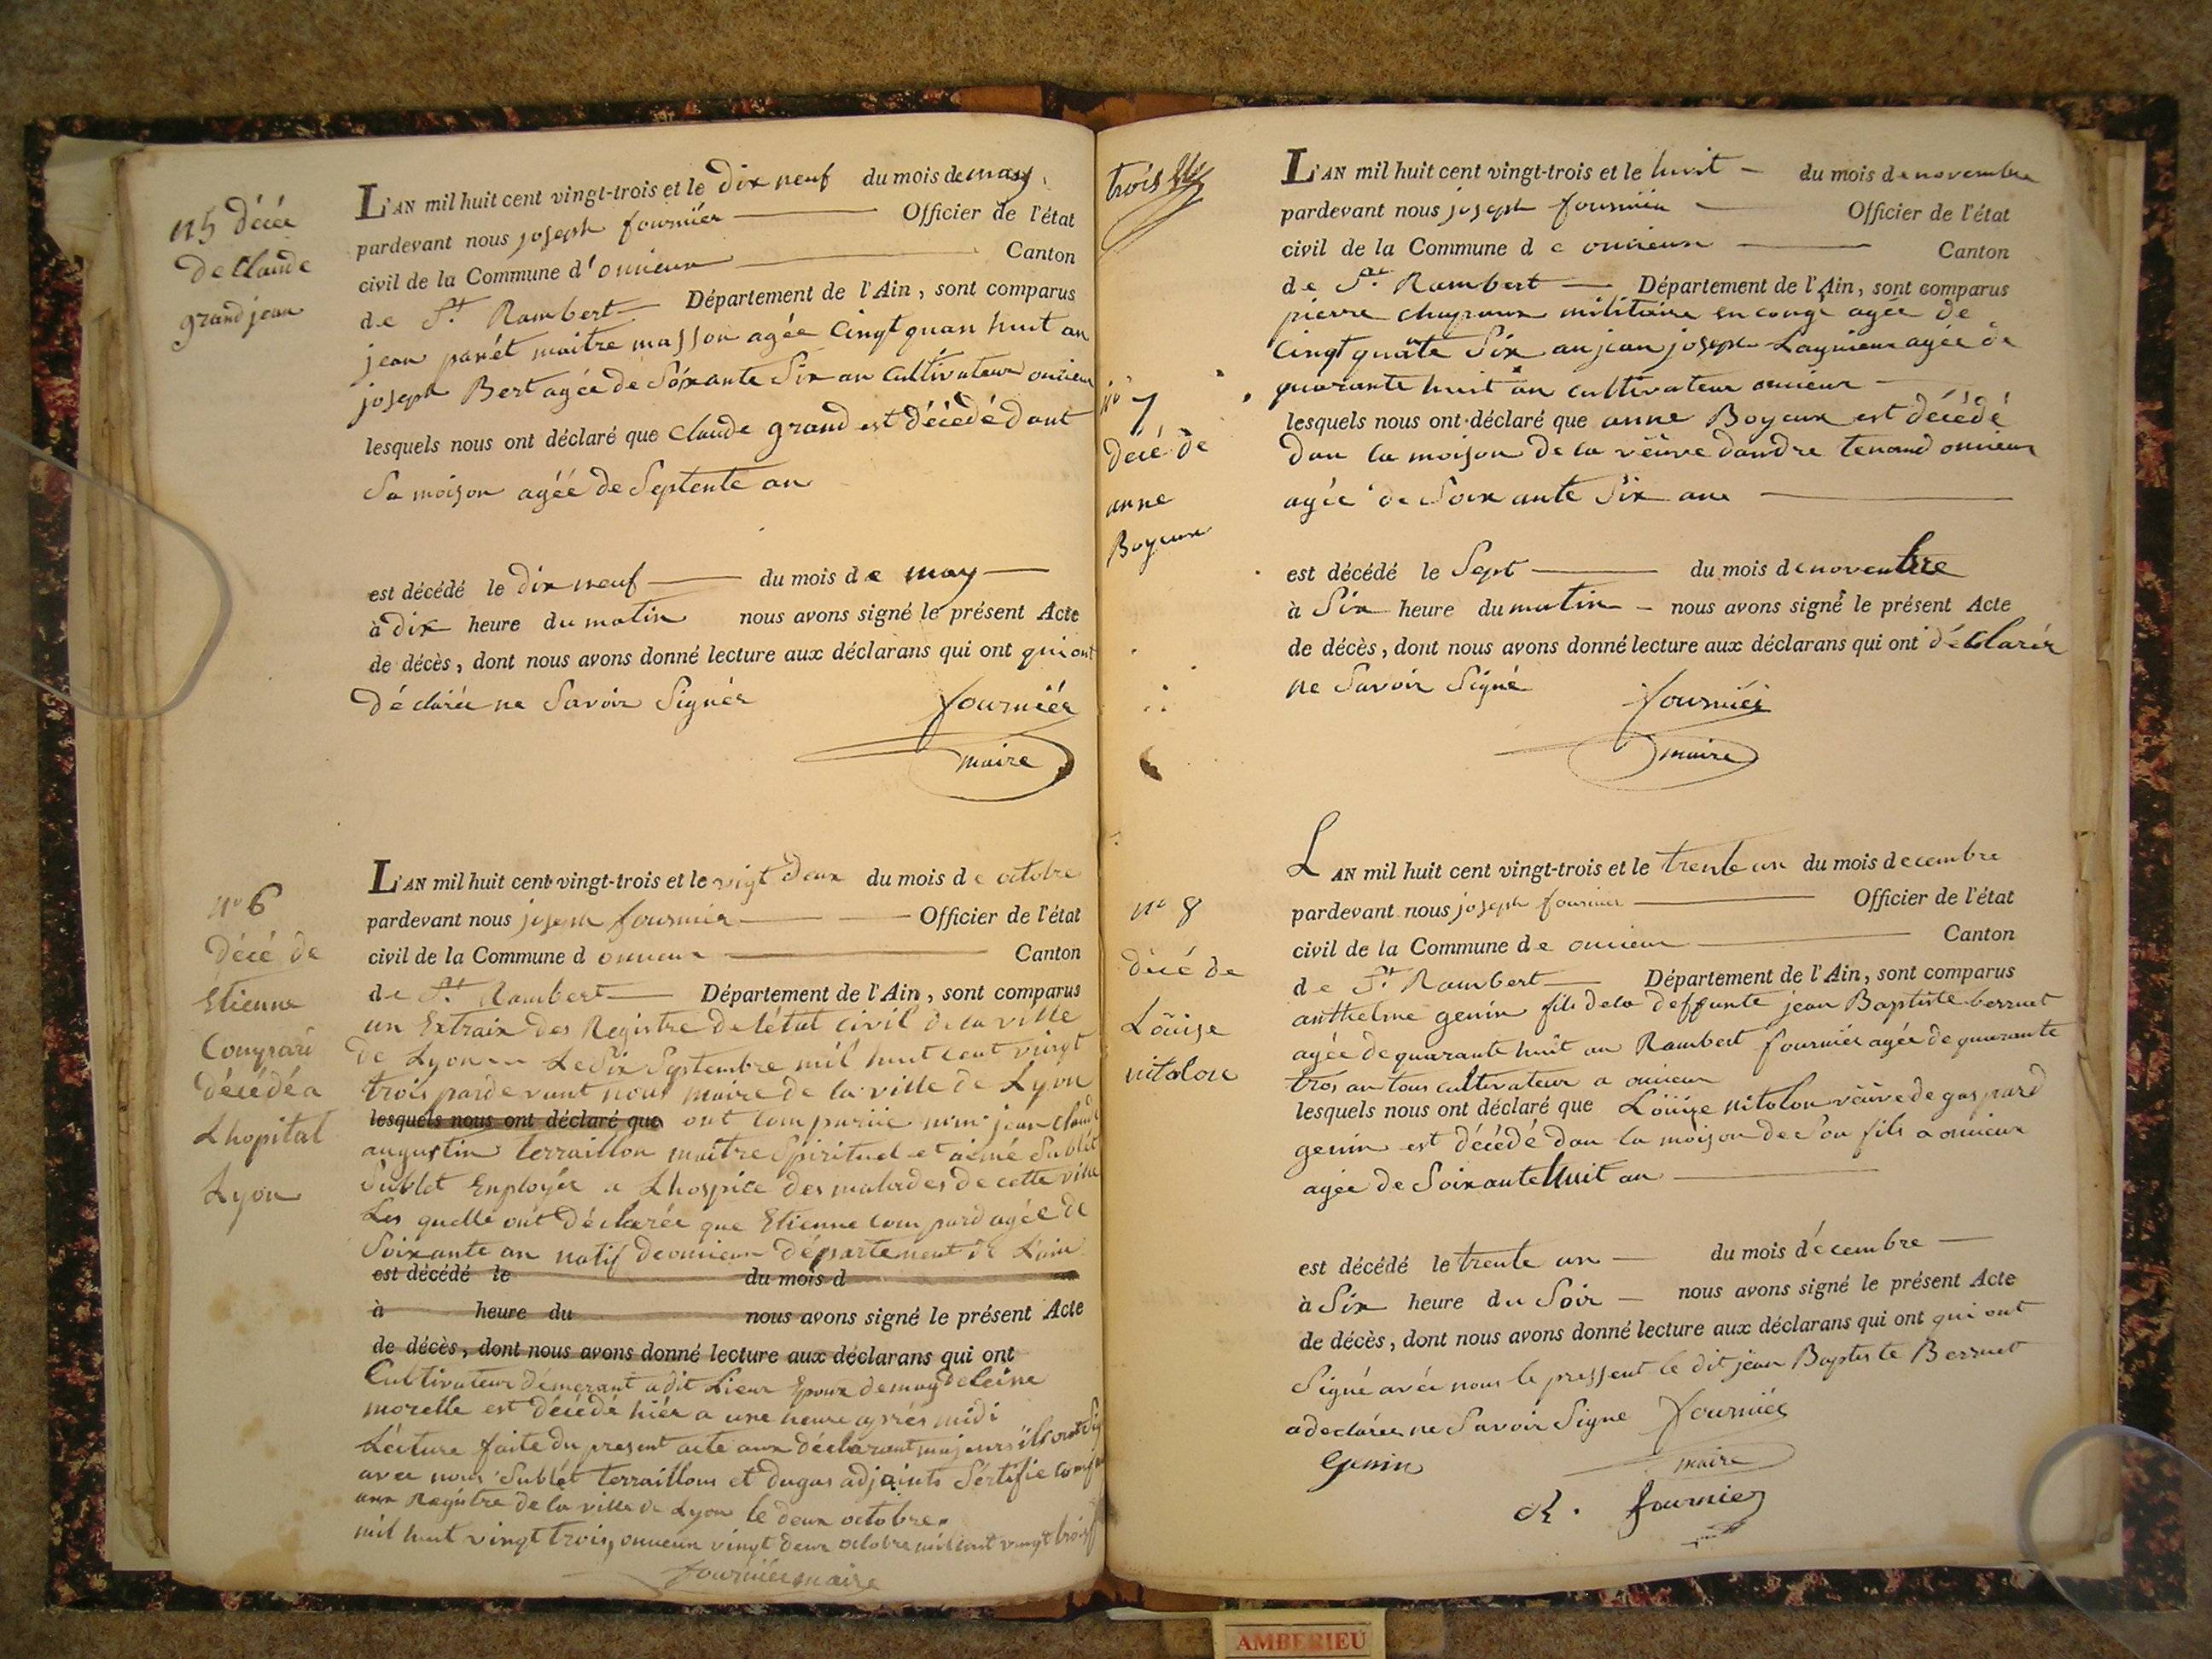 n 5 Décée
de Claude
grand jean
L'AN mil huit cent vingt-trois et le dix neuf du mois de may
pardevant nous joseph fourniér Officier de l'état
civil de la Commune d'onnieux Canton
de St. Rambert Département de l'Ain, sont comparus
jean panét maitre masson agée Cinqt quan huit an
joseph Bert agée de Soixante Six an Cultivateur onnieux
lesquels nous ont déclaré que Claude grand est décédé dant
Sa moison agéé de Septente an
est décédé le dix neuf du mois de may
à dix heure du matin nous avons signé le présent Acte
de décès, dont nous avons donné lecture aux déclarans qui ont qui ont
déclárée ne Savoir Signér
fourniér
maire
n° 6
Décé de
Etienne
Compard
décédé a
Lhopital
Lyon
L'AN mil huit cent vingt-trois et le vigt deux du mois de octobre
pardevant nous joseph fournier Officier de l'état
civil de la Commune d onnieux Canton
de St. Rambert Département de l'Ain, sont comparus
un Extraix des Registre de létat Civil de la ville
de Lyon Le Six Septembre mil huit cent vingt
trois pardevant nous maire de la ville de Lyon
lesquels nous ont déclaré que ont comparüe jean Claude
augustin terraillon maitre Spirituel et aimé Sublét
Sublet Employée a Lhospice des malades de cette ville
Les quelle ont déclarée que Etienne Compard agée de
Soixante an natif de onnieux département de Lain
est décédé le du mois d
à heure du nous avons signé le présent Acte
de décès, dont nous avons donné lecture aux déclarans qui ont
Cultivateur démerant adit Lieux Epoux de magdeleine
morelle est décédé hiér a une heure aprés midi
Lécture faite du present acte aux déclarant majeurs ils ont Sig
avec nous Sublét terraillons et dugas adjoints Sértifie Conf
aux Registre de la ville de Lyon le deux octobre
mil huit vingt trois, onnieux vingt deux octobre mil huit vingt trois
fourniér maire
trois
n° 7
décé de
anne
Boyeux
L'AN mil huit cent vingt-trois et le huit du mois de novembre
pardevant nous joseph fourniér Officier de l'état
civil de la Commune de onnieux Canton
de St. Rambert Département de l'Ain, sont comparus
pierre chapraux militaire en congé agée de
Cingt quante Six an jean joseph Lagnieux agée de
quarante huit an cultivateur onnieux
lesquels nous ont déclaré que anne Boyeux est décédé
dan la moison de la véüve dandre tenand onnieux
agée de Soixante Six ans
est décédé le Sept du mois de novembre
à Six heure du matin nous avons signé le présent Acte
de décès, dont nous avons donné lecture aux déclarans qui ont déclarér
ne Savoir Signé
fourniér
maire
n° 8
décé de
Loüise
nitolon
L'AN mil huit cent vingt-trois et le trente un du mois decembre
pardevant nous joseph fournier Officier de l'état
civil de la Commune de onnieux Canton
de St. Rambert Département de l'Ain, sont comparus
anthelme genin fils dela deffunte jean Baptiste berruet
agée de quarante huit an Rambert fourniér agée de quarante
tros an tous cultivateur a onnieux
lesquels nous ont déclaré que Loüise nitolon véüve de gaspard
genin est décédé dan la moison de Son fils a onnieux
agée de Soixante huit an
est décédé le trente un du mois décembre
à Six heure du Soir nous avons signé le présent Acte
de décès, dont nous avons donné lecture aux déclarans qui ont qui ont
Signé avée nous le pressent le dit jean Baptiste Berruet
a declarée ne Savoir Signe fourniér
Genin maire
R. fournier
AMBERIEU